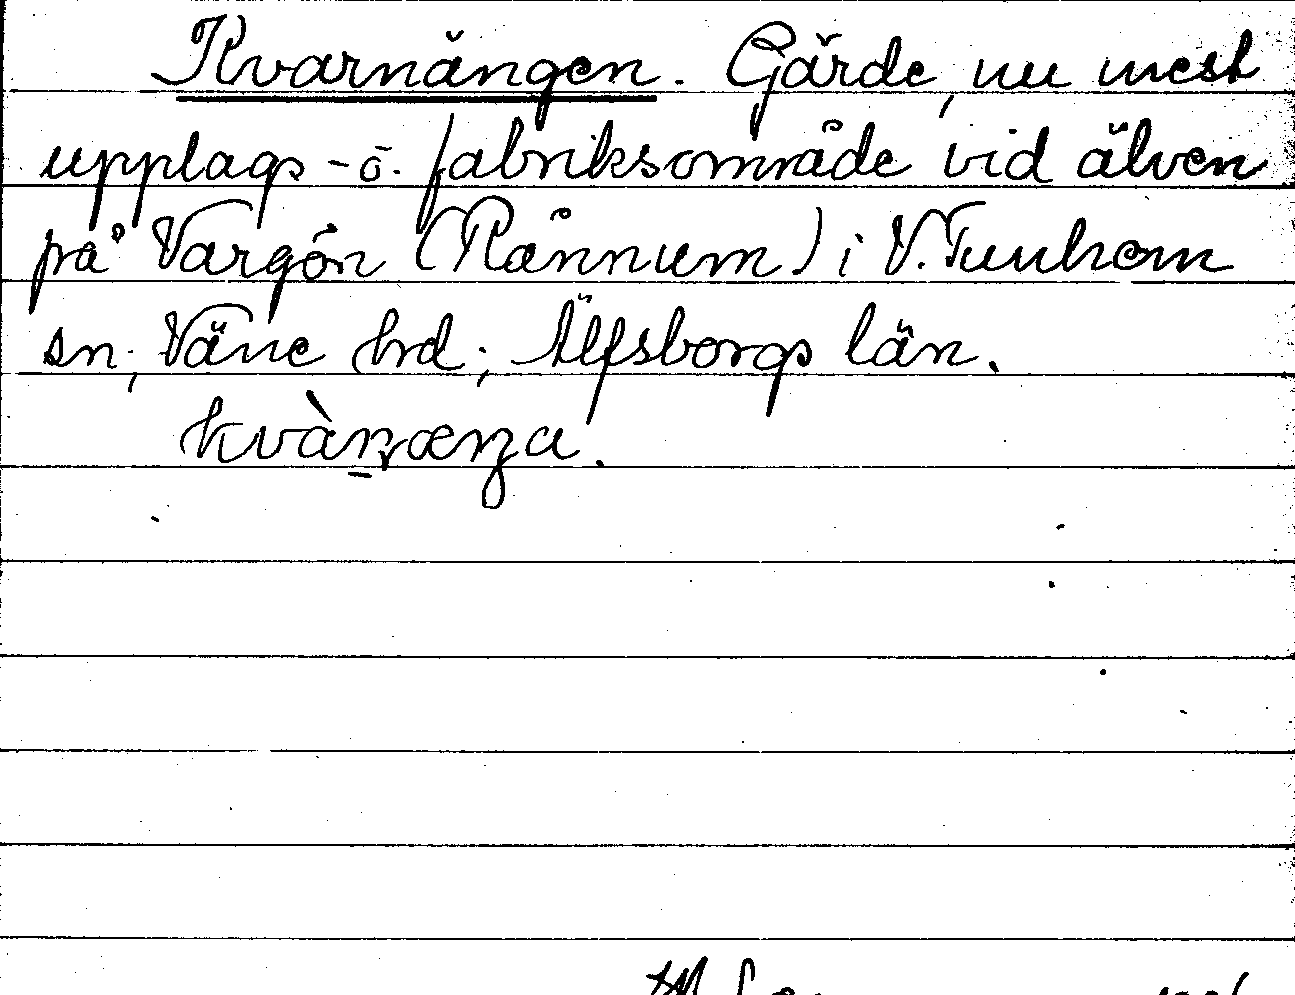 Kvarnängen. Gärde, nu mest
upplags- o. fabriksområde vid älven
på Vargön (Rånnum) i V. Tunhem
sn, Väne hrd, Älfsborgs län.